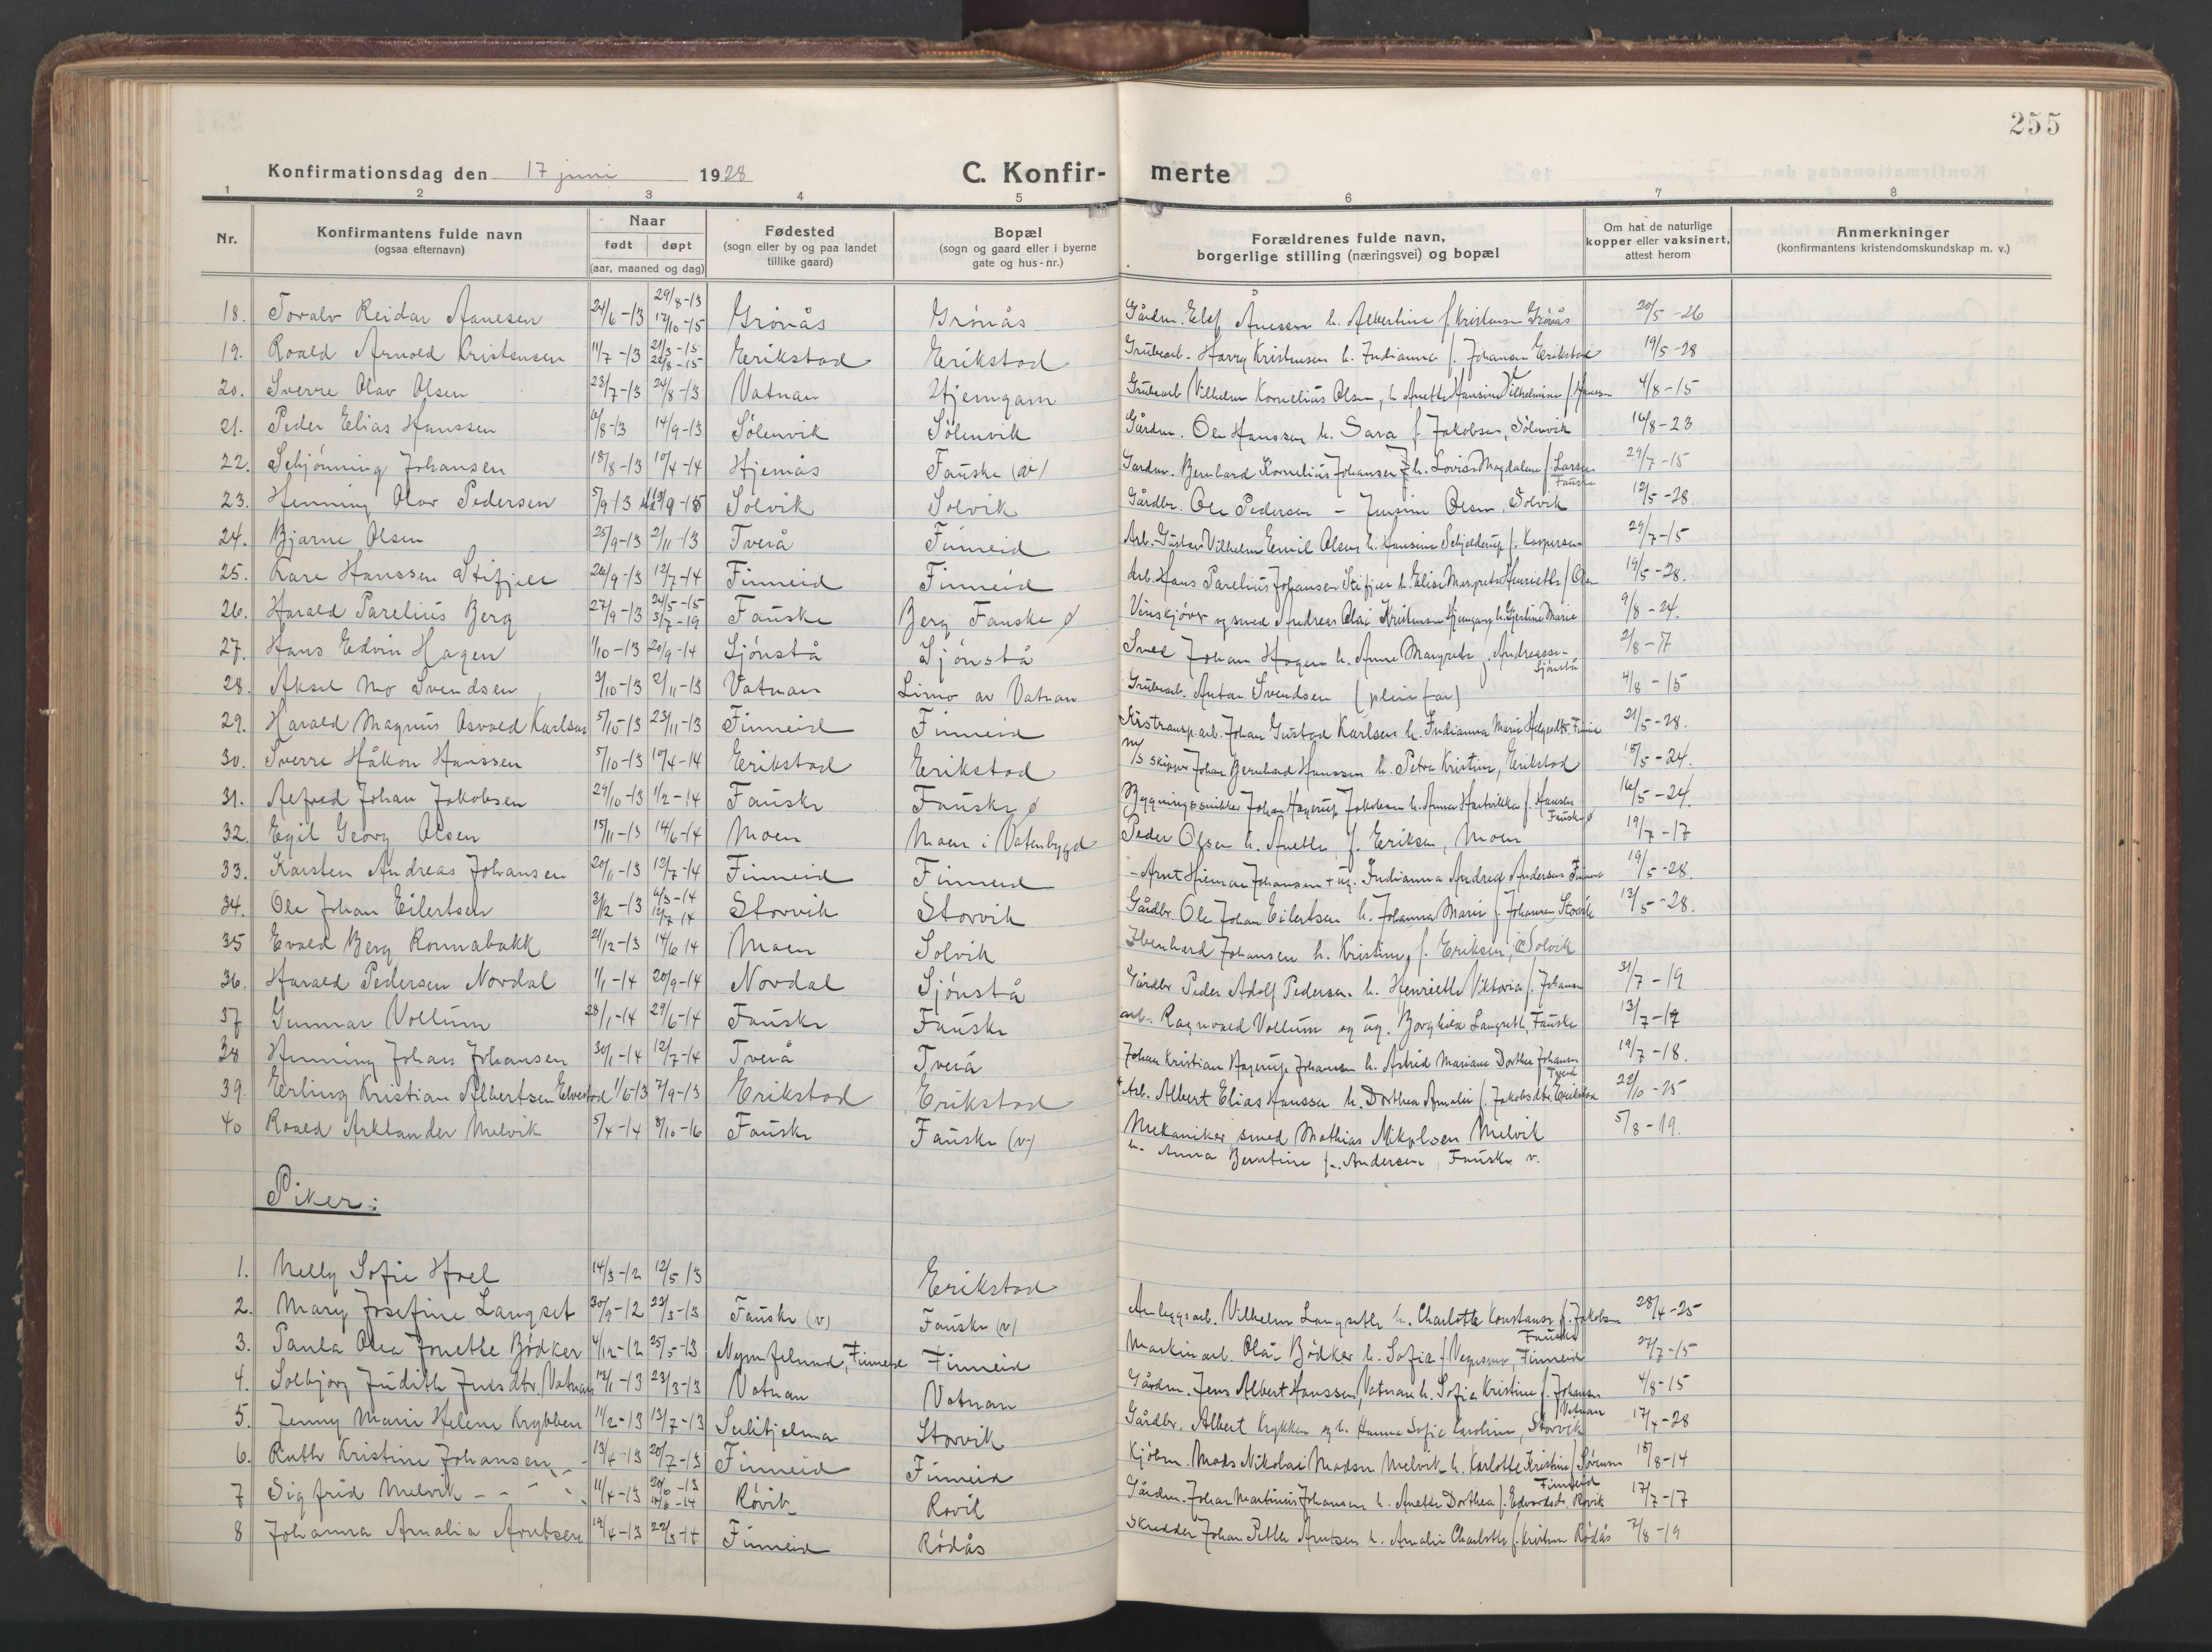 255
Konfirmationsdag den 17 juni 1928 C. Konfirmerte
1 2 3 4 5 6 7 8
Nr. Konfirmantens fulde navn (ogsaa efternavn) Naar født døpt (aar, maaned og dag) Fødested (sogn eller by og paa landet tillike gaard) Bopæl (sogn og gaard eller i byerne gate og hus-nr.) Forældrenes fulde navn, borgerlige stilling (næringsvei) og bopæl Om hat de naturlige kopper eller vaksinert, attest herom Anmerkninger (konfirmantens kristendomskundskap m. v.)
18. Toralv Reidar Aanesen 24/6-13 29/8-13 17/10-15 Grønås Grønås Gårdm. Ånesen h. Albertine f. Kristensen Grønås 20/5-26
19. Roald Arnold Kristensen 11/7-13 21/3-15 22/8-15 Erikstad Erikstad Grubearb. Harry Kristensen h. Indianna f. Johansen Erikstad 19/5-28
20. Sverre Olav Olsen 23/7-13 24/8-13 Vatnan Hjemgam Grubearb. Vilhelm Kornelius Olsen, h. Anette Hansine Vilhelmine f. Hansen 4/8-15
21. Peder Elias Hanssen 6/8-13 14/9-13 Sølenvik Sølenvik Gårdm. Ole Hanssen h. Sara f. Jakobsen, Sølenvik 16/8-23
22. Schjønning Johansen 18/8-13 10/4-14 Hjemås Fauske (v) Gardm. Bernhard Kornelius Johansen h. Lovise Magdalene f. Larsen Fauske 29/7-15
23. Henning Olav Pedersen 5/9-13 Solvik Solvik Gårdbr. Ole Pedersen - Jensine Olsen, Solvik 12/5-28
24. Bjarne Olsen 25/9-13 2/11-13 Tverå Finneid Arb. Gustav Vilhelm Emil Olsen h. Hansine Schjelderup f. Kaspersen 29/7-15
25. Kåre Hanssen Stifjell 26/9-13 12/7-14 Finneid Finneid Arb. Hans Parelius Johansen Stifjell h. Elise Margrete Henriette f. Olsen 19/5-28.
26. Harald Parelius Berg 27/9-13 24/5-15 3/7-19 Fauske Berg Fauske ø og smed Andreas Olai Kristensen Hjemgam h. Gjertine Marie 9/8-24.
27. Hans Edvin Hagen 1/10-13 20/9-14 Sjønstå Sjønstå Smed Johan Hagen h. Anne Margrete Andreassen Sjønstå 2/8-17
28. Aksel Mo Svendsen 3/10-13 2/11-13 Vatnan Limo av Vatnan Grubearb. Anton Svendsen (pleiefar) 4/8-15
29. Harald Magnus Osvald Karlsen 5/10-13 23/11-13 Finneid Finneid Kistransp.arb. Johan Gustad Karlsen h. Indianna Marie Finneid 21/5-28.
30. Sverre Håkon Hanssen 5/10-13 10/4-14 Erikstad Erikstad M/S skipper Johan Bernhard Hanssen h. Petra Kristine, Erikstad 18/5-24.
31. Alfred Johan Jakobsen 29/10-13 1/2-14 Fauske Fauske ø Bygningssnikker Johan Hagerup Jakobsen h. Anna Hartvikka f. Hansen Fauske ø 16/5-24.
32. Egil Georg Olsen 15/11-13 14/6-14 Moen Moen i Vatenbygd Peder Olsen h. Anette f. Eriksen, Moen 19/7-17
33. Karsten Andreas Johansen 20/11-13 12/7-14 Finneid Finneid - Arnt Johansen + ug. Indianna Andrea Andersen Finneid 19/5-28.
34. Ole Johan Eilertsen 3/12-13 6/3-14 12/7 14 Storvik Storvik Gårdbr. Ole Johan Eilertsen h. Johanna Marie f. Johansen Storvik 13/5-28.
35 Evald Berg Ronnabakk 21/12-13 14/6 14 Moen Solvik Johansen h. Kristine f. Eriksen, Solvik
36. Harald Pedersen Nordal 1/1-14 20/9-14 Nordal Sjønstå Gårdbr Peder Adolf Pedersen h. Henriette Viktoria f. Johansen 31/7-19
37 Gunnar Vollum 28/1-14 29/6-14 Fauske Fauske arb. Ragnvald Vollum og ug. Borghild Langseth, Fauske 13/7-17
38 Henning Johan Johansen 30/1-14 12/7-14 Tverå Tverå Johan Kristian Hagerup Johansen h. Astrid Mariane Dorthea Johansen Tverå 19/7-18.
39. Erling Kristian Albertsen Elvestad 1/6-13 7/9-13 Erikstad Erikstad Arb. Albert Elias Hanssen h. Dorthea Amalie f. Jakobsdtr. Erikstad 22/10-25
40 Roald Arktander Melvik 5/4-14 8/10-16 Fauske Fauske (v) Mekaniker, smed Mathias Nikolsen Melvik 5/8-19.
h. Anna Berntine f. Andersen, Fauske v.
Piker:
1. Nelly Sofie Hoel 14/3-12 12/5 13 Erikstad
2. Mary Josefine Langset 30/9-12 23/3-13 Fauske (v) Fauske (v) Anleggsarb. Vilhelm Langseth h. Charlotte Konstanse f. Jakobsen Fauske 28/4-25
3. Paula Olea Jonette Bødker 4/12-12 25/5-13 Nymfelund, Finneid Finneid Maskinarb. Olai Bødker h. Sofie f. Finneid 27/7-15
4. Solbjørg Judith Jensdtr. Vatnan 13/1-13 23/3-13 Vatnan Vatnan Gårdm. Jens Albert Hanssen, Vatnan h. Sofie Kristine f. Johansen Vatnan 4/8-15
5. Jenny Marie Helene Krybben 11/2-13 13/7-13 Sulitjelma Storvik Gårdbr. Albert Krykken og h. Hanna Sofie Karoline, Storvik 17/4-28
6. Ruth Kristine Johansen 13/4-13 20/7-13 Finneid Finneid Kjøbm. Mads Nikolai Madsen Melvik h. Karlotte Kristine f. Sørensen Finneid 18/8-14
7 Sigfrid Melvik 11/4-13 Røvik Røvik Gårdm. Johan Martinius Johansen h. Anette Dorthea f. Edvardsdtr. Røvik 17/7-17
8 Johanna Amalia Arntsen 19/4-13 Finneid Rødås Skredder Johan Petter Arntsen h. Amalie Charlotte f. Kristensen Rødås 7/8-19